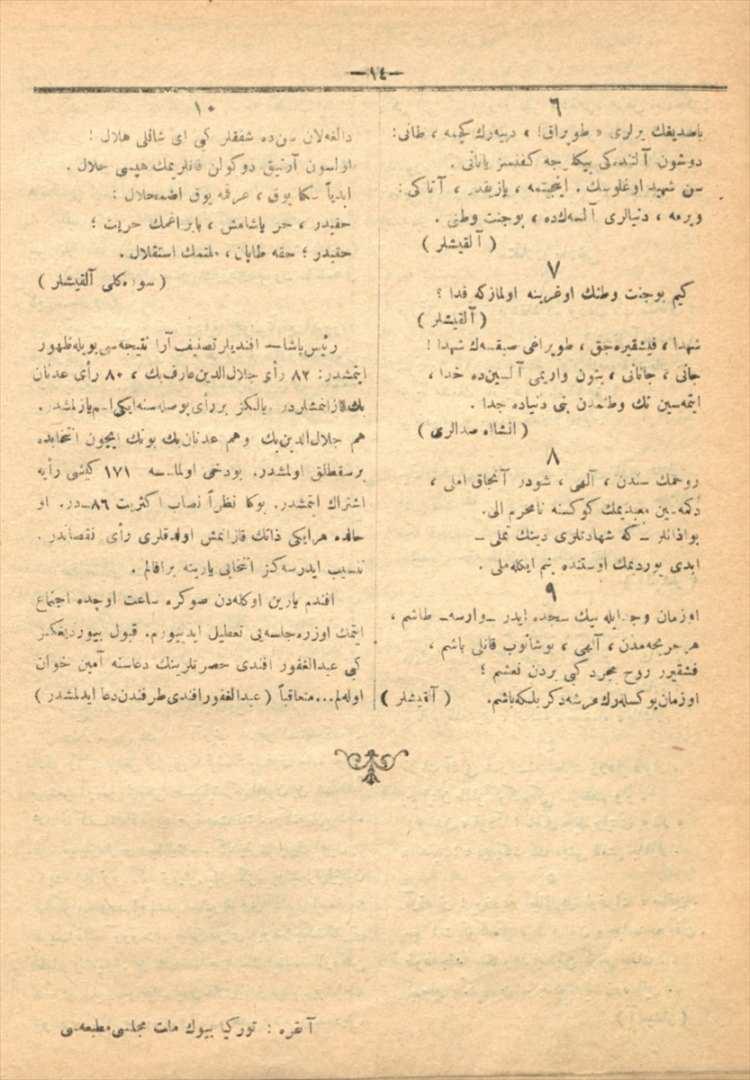 —١٤—
٦
باصدیغك یرلری « طوپراق! » دییه‌رك كچمه ، طانی:
دوشون آلتنده‌كی بیكلرجه كفنسز یاتانی .
سن شهید اوغلوسك . اینجیتمه ، یازیقدر ، آتاكی:
ویرمه ، دنیالری آلسه‌كده ، بوجنت وطنی .
( آلقیشلر )
٧
كیم بوجنت وطنك اوغرینه اولمازكه فدا ؟
( آلقیشلر )
شهدا ، فیشقیره‌جق ، طوپراغی صیقسه‌ك شهدا !
جانی ، جانانی ، بتون واریمی آلسین‌ده خدا ،
ایتمه‌سین تك وطنمدن بنی دنیاده جدا .
( انشاالله صدالری )
٨
روحمك سندن ، آلهی ، شودر آنجاق املی ،
دكمه‌سین معبدیمك كوكسنه نامحرم الی.
بواذانلر ـ كه شهادتلری دینك تملی ـ
ابدی یوردیمك اوستنده بنم ایكله‌ملی .
٩
اوزمان وجدایله بیك سجده ایدر ـ وارسه ـ طاشم ،
هرجریحه‌مدن ، آلهی ، بوشانوب قانلی یاشم ،
فشقیرر روح مجرد كبی یردن نعشم ؛
اوزمان یوكسله‌رك عرشه دكر بلكه باشم. ( آلقیشلر )
١٠
دالغه‌لان سن‌ده شفقلر كبی ای شانلی هلال !
اولسون آرتیق دوكولن قانلریمك هپسی حلال .
ابدیاً سكا یوق ، عرقمه یوق اضمحلال :
حقیدر ، حر یاشامش ، بایراغمك حریت ؛
حقیدر ؛ حقه طاپان ، ملتمك استقلال .
( سوره‌كلی آلقیشلر )
رئیس پاشا — افندیلر تصنیف آرا نتیجه‌سی بویله ظهور
ایتمشدر: ٨٢ رأی جلال‌الدین عارف بك ، ٨٠ رأی عدنان
بك قازانمشلردر. یالكز بررأی پوصله‌سنه ایكی اسم یازلمشدر.
هم جلال‌الدین بك وهم عدنان بك بونك ایچون انتخابده
برسقطلق اولمشدر. بودخی اولماسه ١٧١ كیشی رأیه
اشتراك اتمشدر. بوكا نظراً نصاب اكثریت ٨٦ـدر. او
حالده هرایكی ذاتك قازانمش اولدقلری رأی نقصاندر .
تنسیب ایدرسه‌كز انتخابی یارینه براقالم .
افندم یارین اوكله‌دن صوكره ساعت اوچده اجتماع
ایتمك اوزره جلسه‌یی تعطیل ایدیورم. قبول بیوردیغكز
كبی عبدالغفور افندی حضرتلرینك دعاسنه آمین خوان
اوله‌لم... متعاقباً ( عبدالغفور افندی طرفندن دعا ایدلمشدر )
آنقره : توركیا بیوك ملت مجلسی مطبعه‌سی